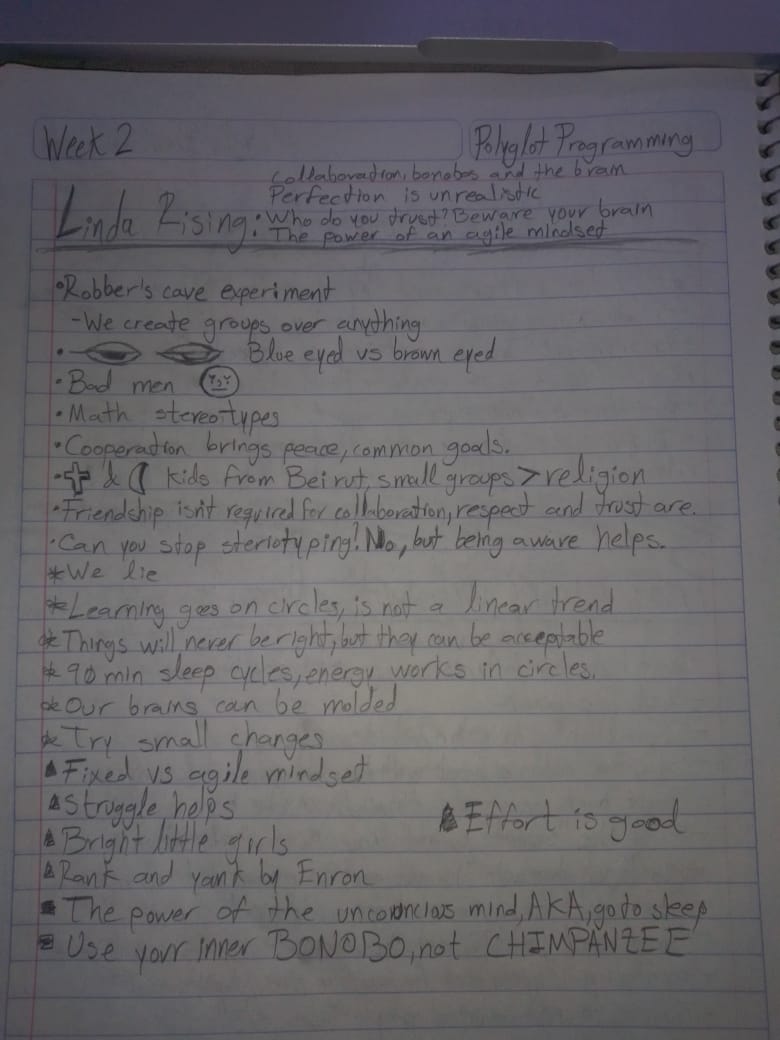 Week 2
Polyglot Programming
Collaboration, bonobos and the brain
Perfection is unrealistic
Linda Rising: Who do you trust? Beware your brain
The power of an agile mindset
•Robber's cave experiment
-We create groups over anything
• Blue eyed vs brown eyed
•Bad men
•Math stereotypes
•Cooperation brings peace, common goals.
• & kids from Beirut, small groups > religion
•Friendship isn't required for collaboration, respect and trust are.
•Can you stop steriotyping? No, but being aware helps.
*We lie
*Learning goes on circles, is not a linear trend
*Things will never be right, but they can be acceptable
*90 min sleep cycles, energy works in circles.
*Our brains can be molded
*Try small changes
▲Fixed vs agile mindset
▲Struggle helps
▲Effort is good
▲Bright little girls
▲Rank and yank by Enron
■The power of the mind, AKA, go to sleep
■Use your inner BONOBO, not CHIMPANZEE